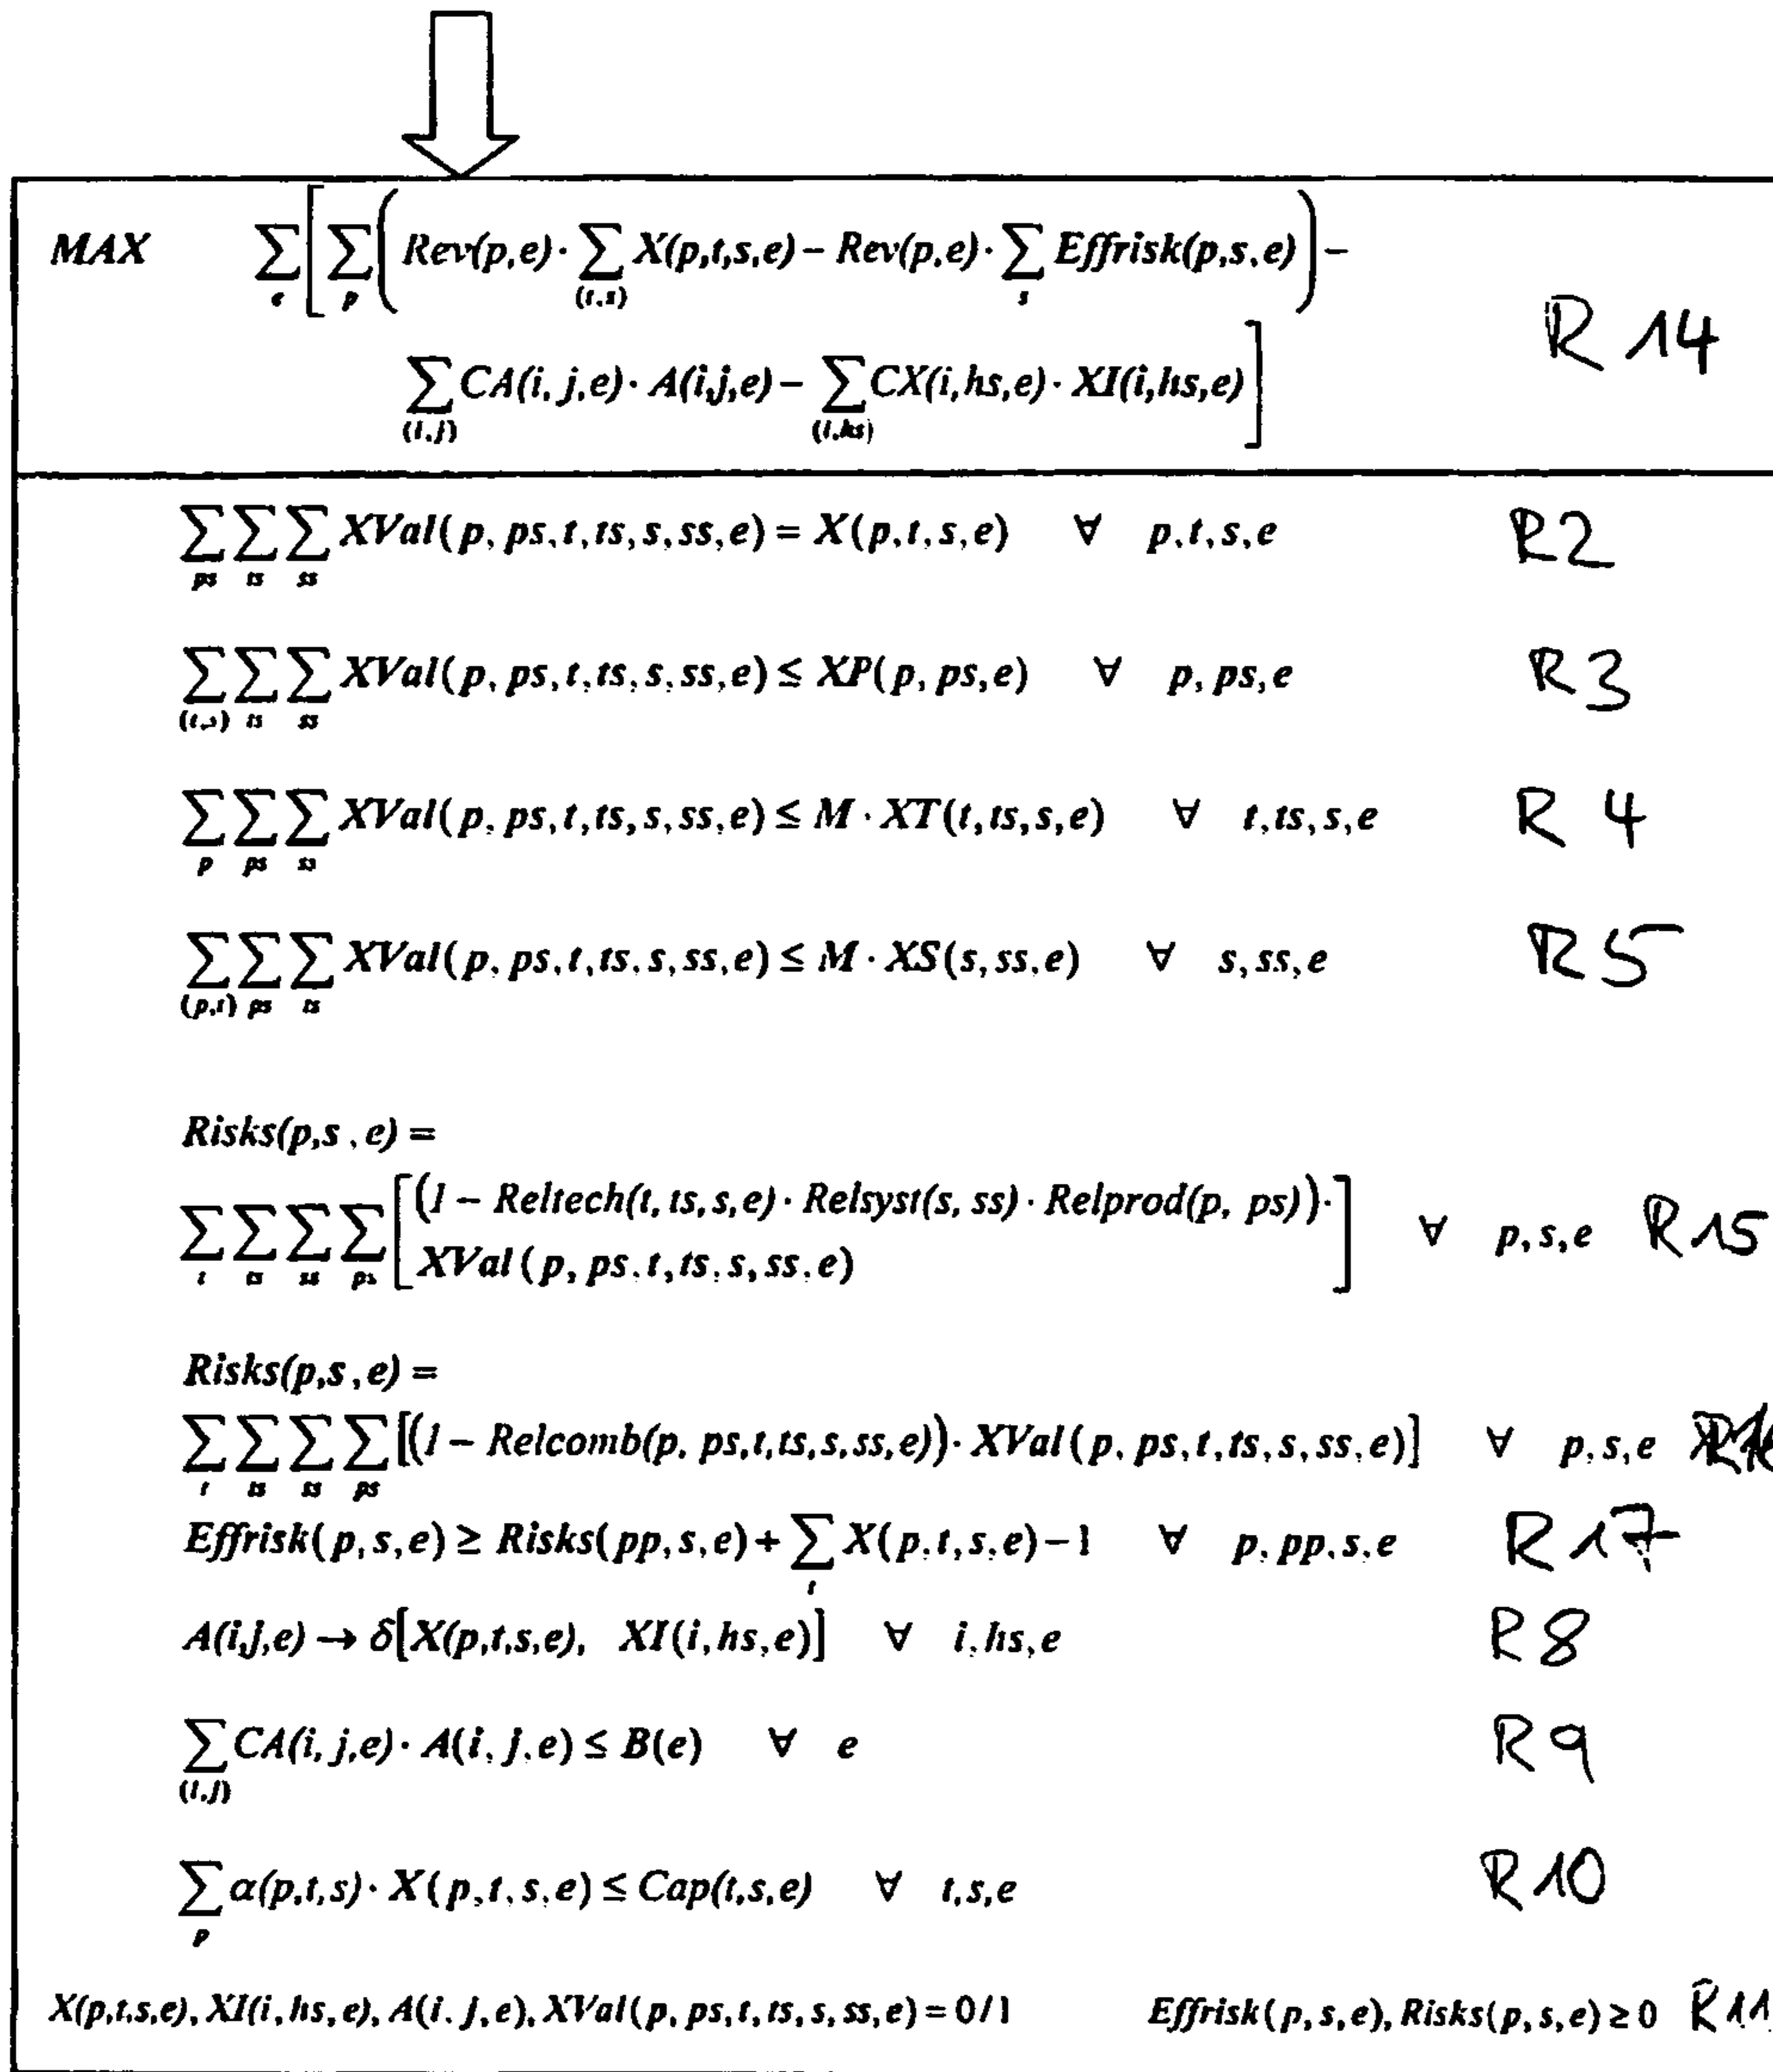 MAX ∑e [ ∑p ( Rev(p,e) · ∑(t,s) X(p,t,s,e) – Rev(p,e) · ∑s Effrisk(p,s,e) ) –
∑(i,j) CA(i, j,e) · A(i,j,e) – ∑(i,hs) CX(i,hs,e) · XI(i,hs,e) ] R 14
∑ps ∑ts ∑ss XVal(p, ps,t,ts,s,ss,e) = X(p,t,s,e) ∀ p,t,s,e R2
∑(t,s) ∑ts ∑ss XVal(p, ps,t,ts,s,ss,e) ≤ XP(p, ps,e) ∀ p, ps,e R3
∑p ∑ps ∑ss XVal(p, ps,t,ts,s,ss,e) ≤ M · XT(t,ts,s,e) ∀ t,ts,s,e R 4
∑(p,t) ∑ps ∑ts XVal(p, ps,t,ts,s,ss,e) ≤ M · XS(s,ss,e) ∀ s,ss,e R5
Risks(p,s,e) =
∑t ∑ts ∑ss ∑ps [ (1 – Reltech(t, ts,s,e) · Relsyst(s, ss) · Relprod(p, ps)) ·
XVal(p, ps,t,ts,s,ss,e) ] ∀ p,s,e R15
Risks(p,s,e) =
∑t ∑ts ∑ss ∑ps [(1 – Relcomb(p, ps,t,ts,s,ss,e)) · XVal(p, ps,t,ts,s,ss,e)] ∀ p,s,e R16
Effrisk(p,s,e) ≥ Risks(pp,s,e) + ∑t X(p,t,s,e) – 1 ∀ p,pp,s,e R17
A(i,j,e) → δ[X(p,t,s,e), XI(i,hs,e)] ∀ i,hs,e R8
∑(i,j) CA(i, j,e) · A(i, j,e) ≤ B(e) ∀ e R9
∑p α(p,t,s) · X(p,t,s,e) ≤ Cap(t,s,e) ∀ t,s,e R10
X(p,t,s,e), XI(i,hs,e), A(i,j,e), XVal(p, ps,t,ts,s,ss,e) = 0/1 Effrisk(p,s,e), Risks(p,s,e) ≥ 0 R11